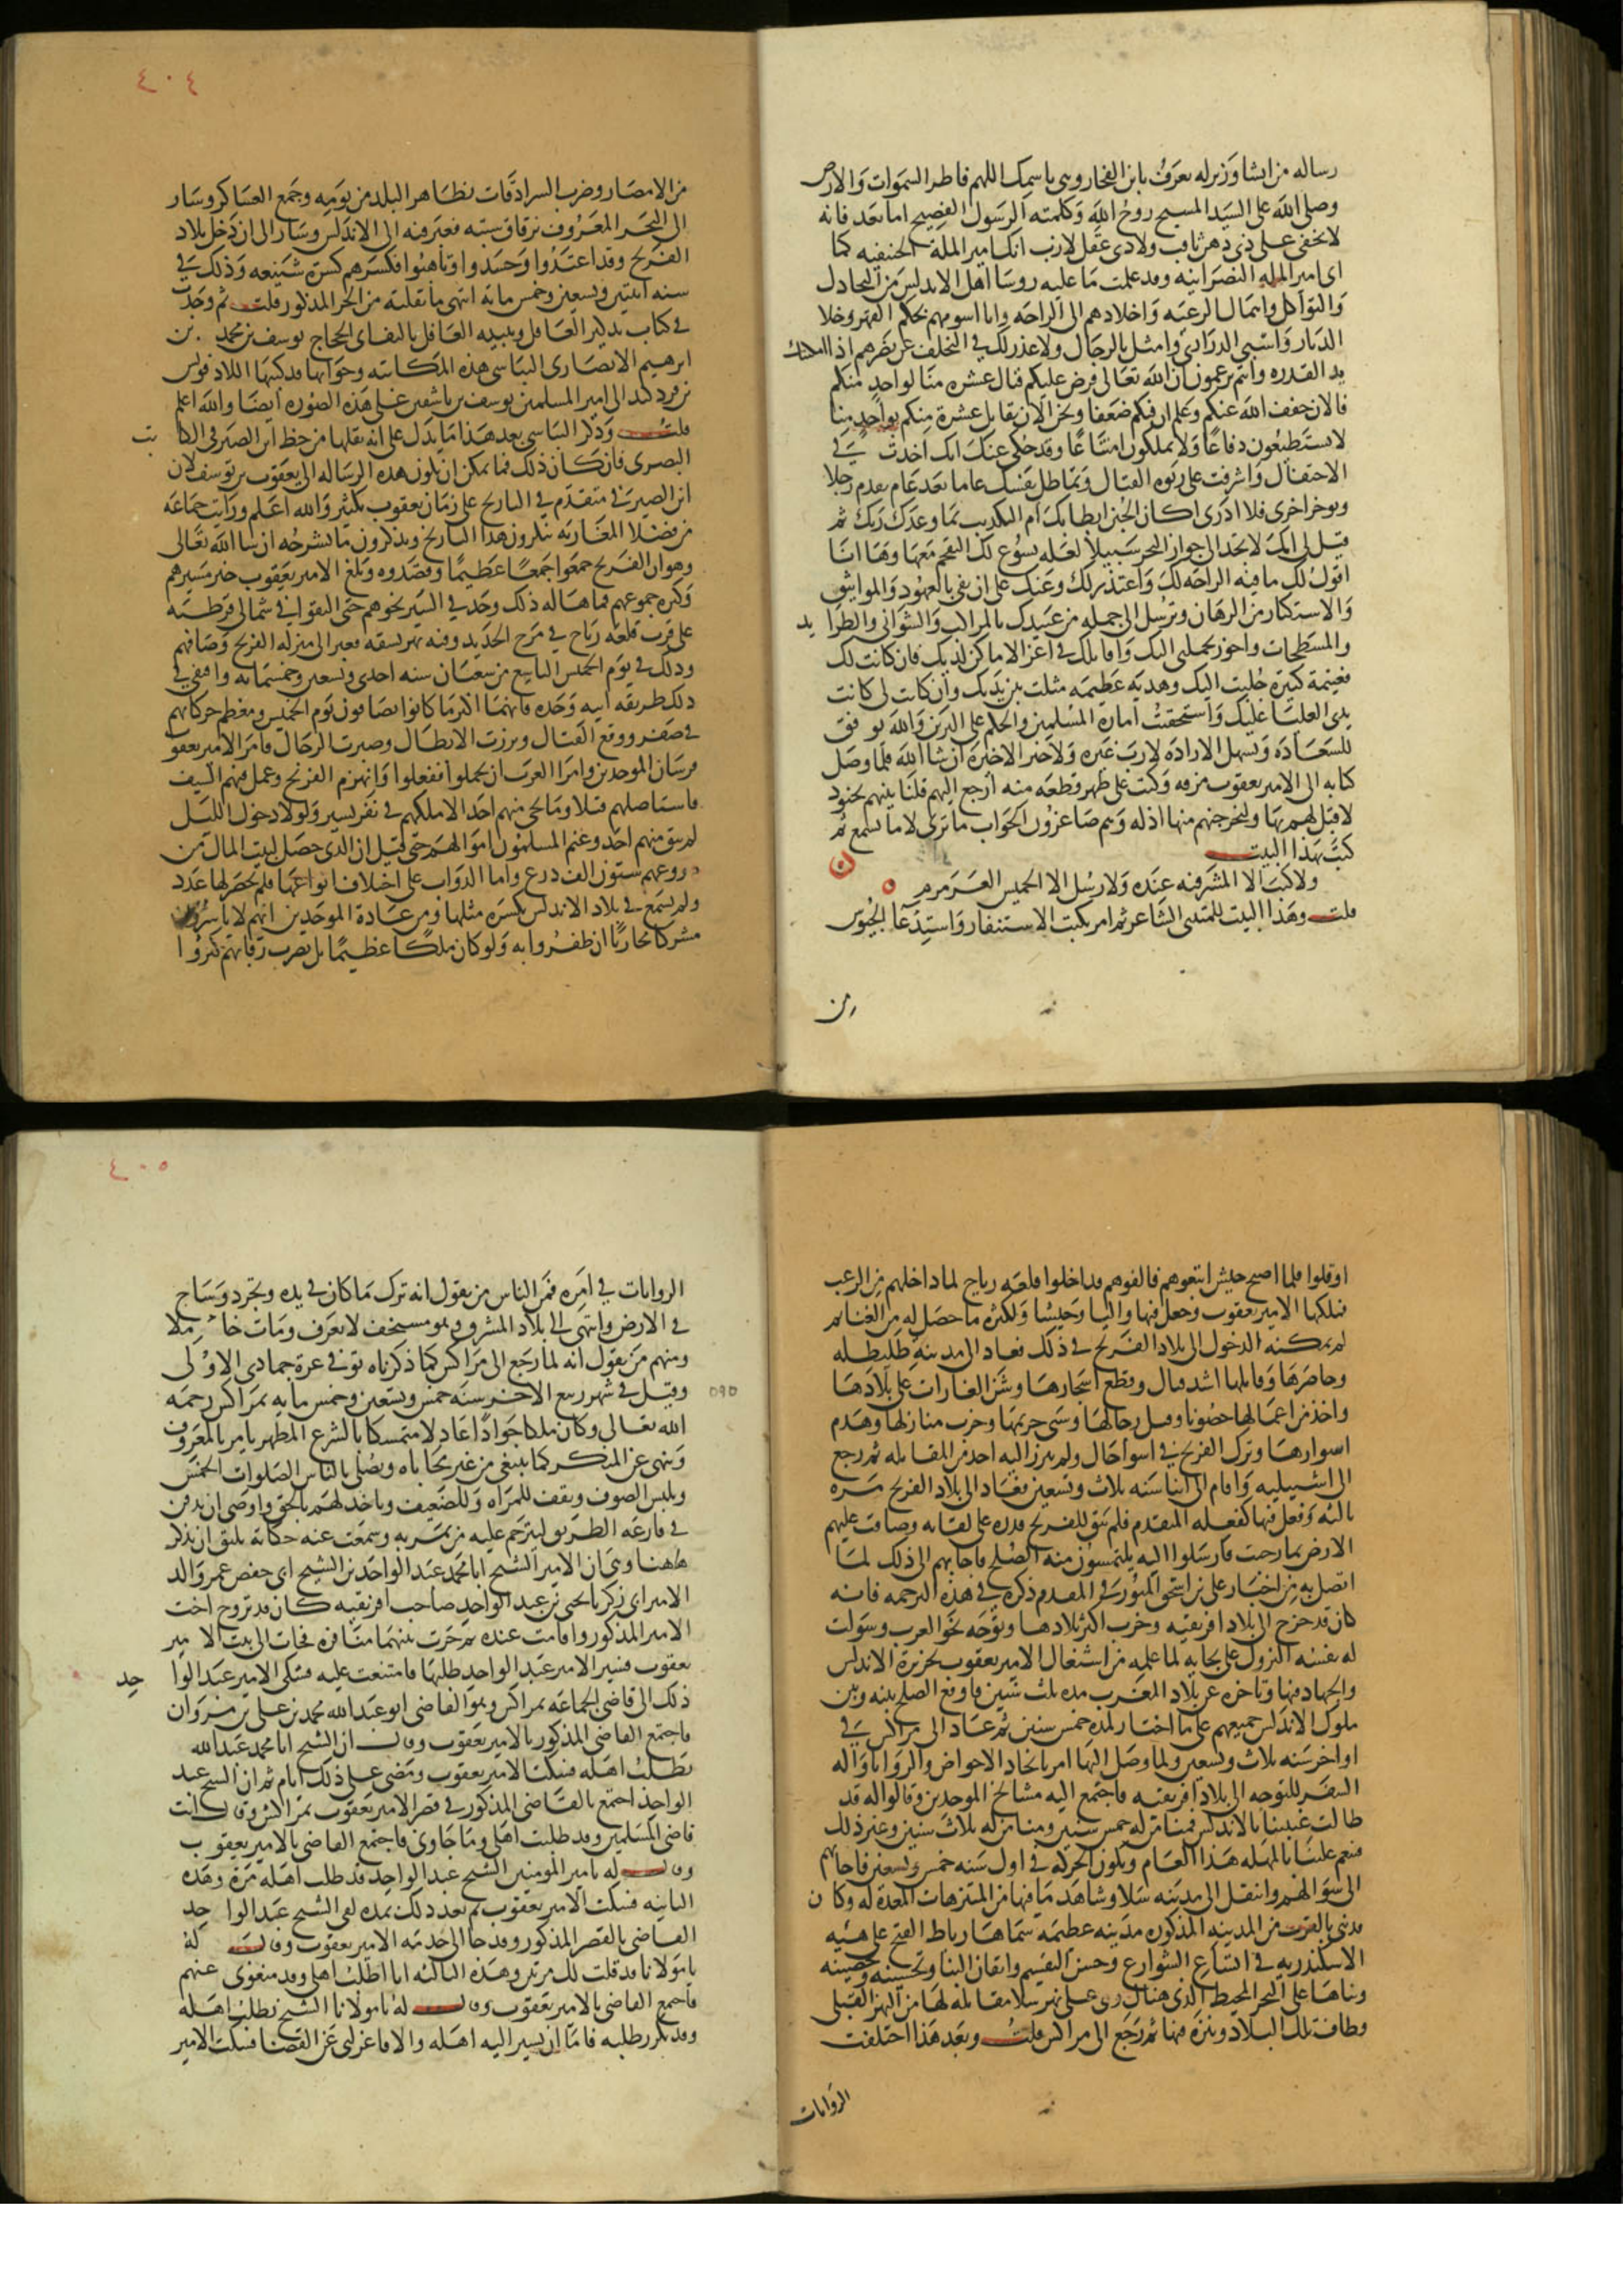 رساله من انشا وزير له يعرف بابن الفخار وهى باسمك اللهم فاطر السموات والارض
وصلى الله على السيد المسيح روح الله وكلمته الرسول الفصيح اما بعد فانه
لا يخفى على ذى ذهن ثاقب ولا ذى عقل لازب انك امير الملة الحنيفيه كما
انى امير الملة النصرانيه وقد علمت ما عليه روسا اهل الاندلس من التخاذل
والتواكل واهمال الرعيه واخلادهم الى الراحه وانا اسومهم بحكم القهر وخلا
الديار واسبى الذرارى وامثل بالرجال ولا عذر لك فى التخلف عن نصرهم اذا امكنتك
يد القدره وانتم تزعمون ان الله تعالى فرض عليكم قتال عشره منا لواحد منكم
فالان خفف الله عنكم وعلم ان فيكم ضعفا ونحن الان نقاتل عشرة منكم بواحد منا
لا تستطيعون دفاعا ولا تملكون امتناعا وقد حكى عنك انك اخذت فى
الاحتفال واشرفت على ربوه القتال وتماطل نفسك عاما بعد عام تقدم رجلا
وتوخر اخرى فلا ادرى اكان الجبن ابطا بك ام التكذيب بما وعدك ربك ثم
قيل لى انك لا تجد الى جواز البحر سبيلا لعله يسوغ لك التقحم معها وها انا
اقول لك ما فيه الراحه لك واعتذر لك وعنك على ان تفى بالعهود والمواثيق
والاستكثار من الرهان وترسل الى جمله من عبيدك بالمراكب والشوانى والطرايد
والمسطحات واجوز بجملتى اليك واقاتلك فى اعز الاماكن لديك فان كانت لك
فغنيمة كبيرة جلبت اليك وهديه عظيمه مثلت بين يديك وان كانت لى كانت
يدى العليا عليك واستحققت امارة المسلمين والحكم على البرين والله يوفق
للسعادة ويسهل الارادة لا رب غيره ولا خير الا خيره ان شا الله فلما وصل
كتابه الى الامير يعقوب مزقه وكتب على ظهر قطعه منه ارجع اليهم فلناتينهم بجنود
لا قبل لهم بها ولنخرجنهم منها اذلة وهم صاغرون الجواب ما ترى لا ما تسمع ثم
كتب بهذا البيت
ولا كتب الا المشرفيه عنده ولا رسل الا الخميس العرمرم
قلت وهذا البيت للمتنبى الشاعر ثم امر بكتب الاستنفار واستدعا الجيوش
من
٤٠٤
من الامصار وضرب السرادقات بظاهر البلد من يومه وجمع العساكر وسار
الى البحر المعروف بزقاق سبته فعبر فيه الى الاندلس وسار الى ان دخل بلاد
الفرنج وقد اعتدوا وحشدوا وتاهبوا فكسرهم كسرة شنيعه وذلك فى
سنه اثنتين وتسعين وخمس مائة انتهى ما نقلته من الجزء المذكور قلت ثم وجدت
فى كتاب تذكير العاقل وتنبيه الغافل تاليف ابى الحجاج يوسف بن محمد بن
ابرهيم الانصارى البياسى هذه المكاتبه وجوابها قد كتبها الاذفونش
بن فرذلند الى امير المسلمين يوسف بن تاشفين على هذه الصوره ايضا والله اعلم
قلت وذكر البياسى بعد هذا ما يدل على انه نقلها من خط ابن الصيرفى الكاتب
المصرى فان كان ذلك فما يمكن ان تكون هذه الرساله الى يعقوب بن يوسف لان
ابن الصيرفى متقدم فى التاريخ على زمان يعقوب بكثير والله اعلم ورايت جماعه
من فضلا المغاربه ينكرون هذا التاريخ ويذكرون ما نشرحه ان شا الله تعالى
وهو ان الفرنج جمعوا جمعا عظيما وقصدوه وبلغ الامير يعقوب خبر مسيرهم
وكثرة جموعهم فما هاله ذلك وجد فى السير نحوهم حتى التقوا فى شمالى قرطبه
على قرب قلعه رباح فى مرج الحديد وفيه نهر يشقه فعبر الى منزله الفرنج وصافهم
وذلك فى يوم الخميس التاسع من شعبان سنه احدى وتسعين وخمسمائه واقتفى فى
ذلك طريقه ابيه وجده فانهما اكثر ما كانوا يصافون يوم الخميس ومعظم حركاتهم
فى صفر ووقع القتال وبرزت الابطال وصبرت الرجال فامر الامير يعقوب
فرسان الموحدين وامرا العرب ان يحملوا ففعلوا وانهزم الفرنج وعمل فيهم السيف
فاستاصلهم قتلا وما نجى منهم احد الا ملكهم فى نفر يسير ولولا دخول الليل
لم يبق منهم احد وغنم المسلمون اموالهم حتى قيل ان الذى حصل لبيت المال من
دروعهم ستون الف درع واما الدواب على اختلاف انواعها فلم يحصر لها عدد
ولم يسمع فى بلاد الاندلس بكسرة مثلها ومن عادة الموحدين انهم لا ياسرون
مشركا محاربا ان ظفروا به ولو كان ملكا عظيما بل يضرب رقابهم كثروا
او قلوا فلما اصبح جيش اتبعوهم فالفوهم قد اخلوا قلعه رباح لما داخلهم من الرعب
فملكها الامير يعقوب وجعل فيها واليا وجيشا ولكثره ما حصل له من الغنايم
لم يمكنه الدخول الى بلاد الفرنج فى ذلك فعاد الى مدينة طليطله
وحاصرها وقاتلها اشد قتال وقطع اشجارها وشن الغارات على بلادها
واخذ من اعمالها حصونا وقتل رجالها وسبى حريمها وخرب منازلها وهدم
اسوارها وترك الفرنج فى اسوا حال ولم يبرز اليه احد من المقابله ثم رجع
الى اشبيليه واقام الى اثنا سنه ثلاث وتسعين فعاد الى بلاد الفرنج مره
ثالثه وفعل فيها كفعله المتقدم فلم يبق للفرنج قدره على لقايه وضاقت عليهم
الارض بما رحبت فارسلوا اليه يلتمسون منه الصلح فاجابهم الى ذلك لما
اتصل به من اخبار على بن اسحق الميورقى المقدم ذكره فى هذه الترجمه فانه
كان قد خرج الى بلاد افريقيه وخرب اكثر بلادها وتوجه نحو العرب وسولت
له نفسه النزول على بجايه لما علمه من اشتغال الامير يعقوب بجزيرة الاندلس
والجهاد فيها وتاخره عن بلاد المغرب مده ثلث سنين فاوقع الصلح بينه وبين
ملوك الاندلس جميعهم على ما اختار لمده خمس سنين ثم عاد الى مراكش فى
اواخر سنه ثلاث وتسعين ولما وصل اليها امر باتخاد الاحواض والروايا واله
السفر للتوجه الى بلاد افريقيه فاجتمع اليه مشايخ الموحدين وقالوا له قد
طالت غيبتنا بالاندلس فمنا من له خمس سنين ومنا من له ثلاث سنين وغير ذلك
فنعم علينا بالمهله هذا العام وتكون الحركه فى اول سنه خمس وتسعين فاجابهم
الى سوالهم وانتقل الى مدينه سلا وشاهد ما فيها من المتنزهات المعدة له وكان
قد بنى بالقرب من المدينه المذكوره مدينه عظيمه سماها رباط الفتح على هيه
الاسكندريه فى اتساع الشوارع وحسن التقسيم واتقان البنا وتحسينه وتحصينه
وبناها على البحر المحيط الذى هناك وهى على نهر سلا مقابلة لها من البر القبلى
وطاف تلك البلاد وتنزه فيها ثم رجع الى مراكش قلت وبعد هذا اختلفت
الروايات
٤٠٥
الروايات فى امره فمن الناس من يقول انه ترك ما كان فى يده وتجرد وساح
فى الارض وانتهى الى بلاد المشرق وهو مستخف لا يعرف ومات خاملا
ومنهم من يقول انه لما رجع الى مراكش كما ذكرناه توفى فى غرة جمادى الاولى
وقيل فى شهر ربيع الاخر سنه خمس وتسعين وخمس مايه بمراكش رحمه
٥٩٥
الله تعالى وكان ملكا جوادا عادلا متمسكا بالشرع المطهر يامر بالمعروف
وينهى عن المنكر كما ينبغى من غير محاباه ويصلى بالناس الصلوات الخمس
ويلبس الصوف ويقف للمراه وللضعيف وياخذ لهم بالحق واوصى ان يدفن
فى قارعه الطريق ليترحم عليه من يمر به وسمعت عنه حكاية يليق ان نذكر
هاهنا وهى ان الامير الشيخ ابا محمد عبد الواحد بن الشيخ ابى حفص عمر والد
الامير ابى زكريا يحيى بن عبد الواحد صاحب افريقيه كان قد تزوج اخت
الامير المذكور واقامت عنده ثم جرت بينهما منافره فجات الى بيت الامير
يعقوب فسير الامير عبد الواحد طلبها فامتنعت عليه فشكى الامير عبد الواحد
ذلك الى قاضى الجماعه بمراكش وهو القاضى ابو عبد الله محمد بن على بن مروان
فاجتمع القاضى المذكور بالامير يعقوب وقال ان الشيخ ابا محمد عبد الله
يطلب اهله فسكت الامير يعقوب ومضى على ذلك ايام ثم ان الشيخ عبد
الواحد اجتمع بالقاضى المذكور فى قصر الامير يعقوب بمراكش وقال انت
قاضى المسلمين وقد طلبت اهلى وما جاونى فاجتمع القاضى بالامير يعقوب
وقال له يا امير المومنين الشيخ عبد الواحد قد طلب اهله مرة وهذه
الثانيه فسكت الامير يعقوب ثم بعد ذلك بمده لقى الشيخ عبد الواحد
القاضى بالقصر المذكور وقد جا الى خدمه الامير يعقوب وقال له
يا مولانا قد قلت لك مرتين وهذه الثالثه انا اطلب اهلى وقد منعونى عنهم
فاجتمع القاضى بالامير يعقوب وقال له يا مولانا الشيخ يطلب اهله
وقد تكرر طلبه فاما ان يسير اليه اهله والا فاعزلنى عن القضا فسكت الامير